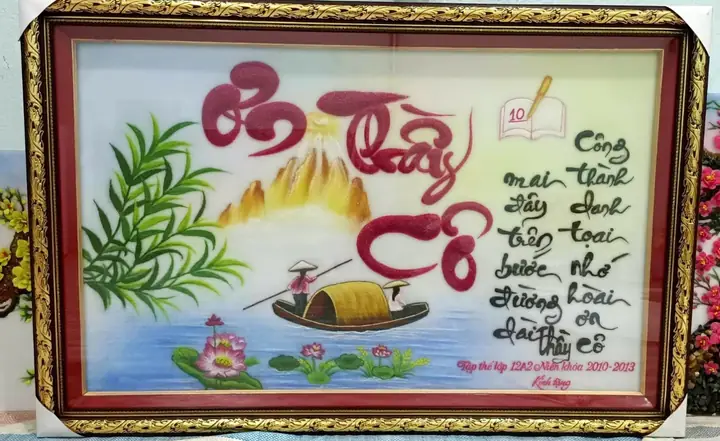 Ơn Thầy
Cô
10
mai đây trên bước đường dài
Công thành danh toại nhớ hoài ơn thầy cô
Tập thể lớp 12A2 Niên khóa 2010-2013
Kính tặng